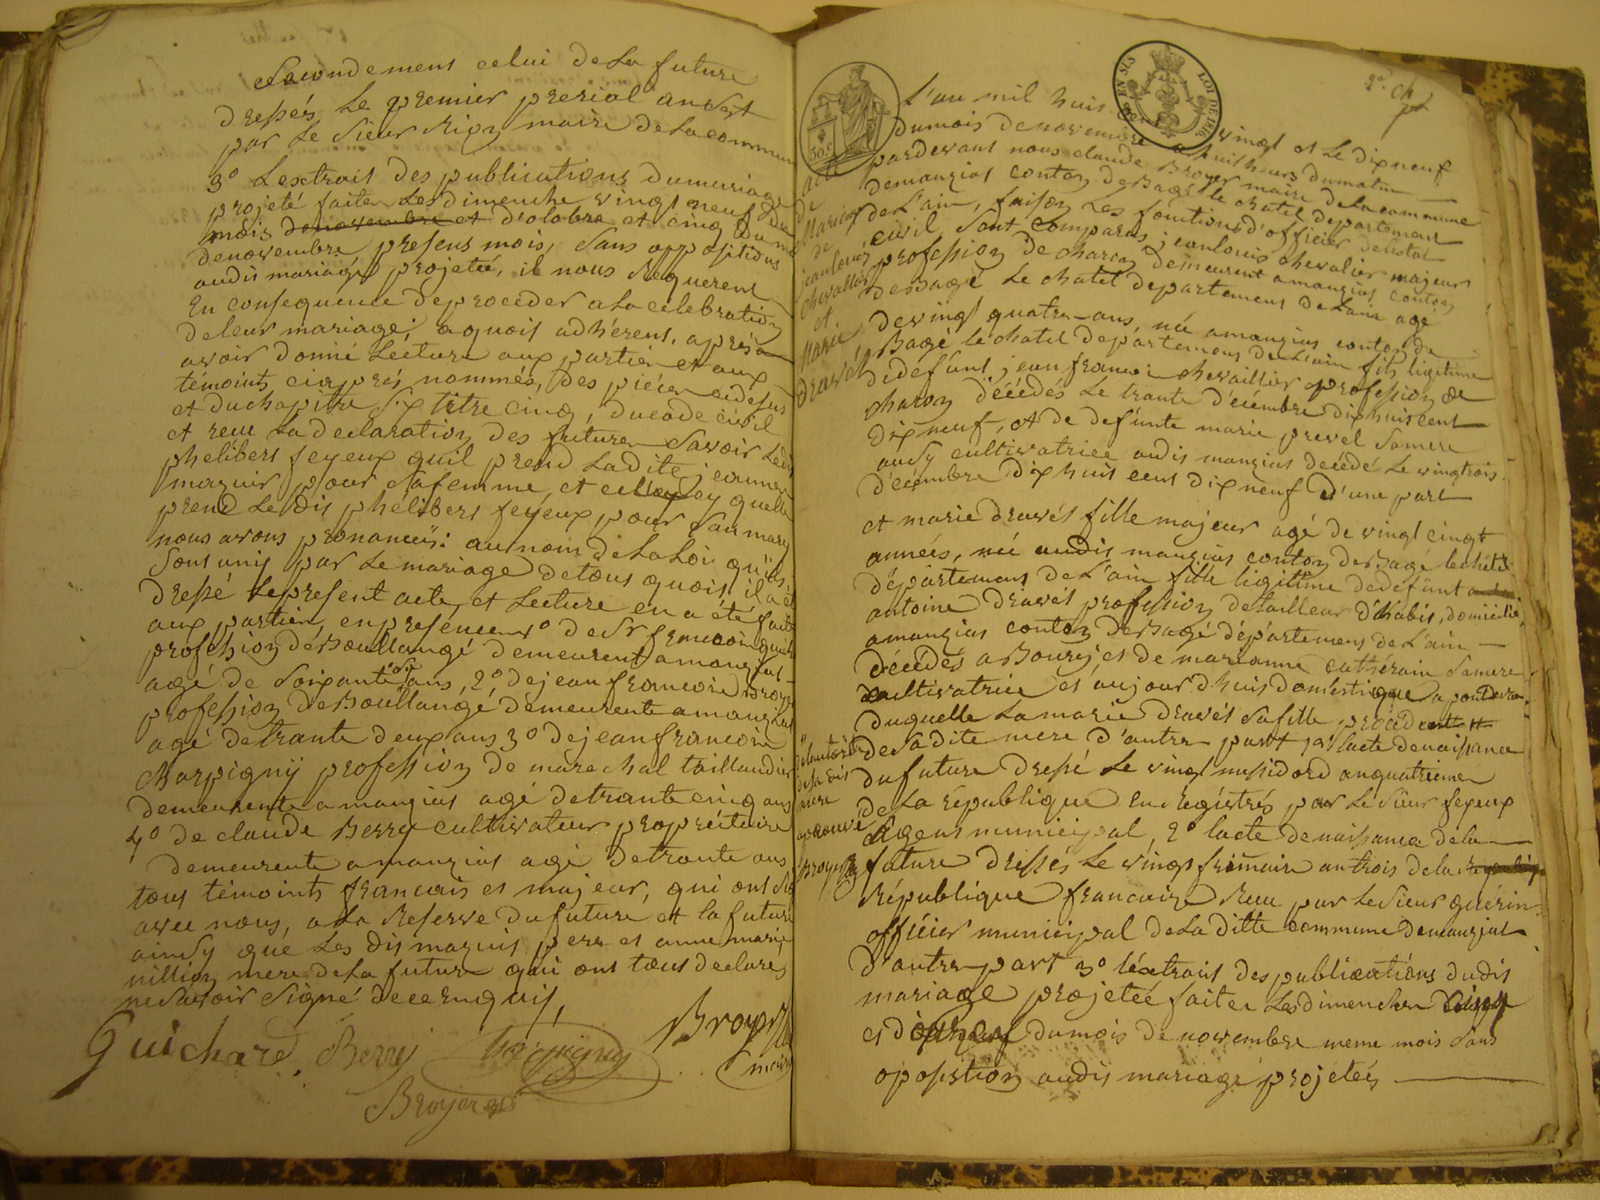 Secondement celui de La future
dressés Le premier prerial an Sept
par Le Sieur maire de La commune
3º Lextrait des publications dumariage
projeté faiter Les dimenche vingt neuf
mois d'octobre et cinq
denovembre presens mois, Sans oppositions
audis mariage projetée, il nous Requerent
En consequence deproceder a La celebration
deleur mariage; aquois adhérent, aprés
avoir donné Lecture aux partier et aux
temoints ciaprés nommés, Des piécer cidesus
et duchapitre Six titre cinq, ducode civil
et recu La declaration des futurer Savoir Ledis
phélibers feyeux quil prend Ladite jeanne
maguir pour Safemme, et quelle
prend Le dis phélibers feyeux pour Sanmary
nous avons prononcéé: aunom de La Loi qu'ils
Sont unis par Le mariage detous quois il a été
dressé Le present acte, et Lecture en a été faite
aux partier, en presencer 1º de Sr francoir guichard
profession deBoullangé demeurent amanzias
agé de Soixante ans, 2º dejean francoir Broyer
profession deBoullangé demeurente amanzias
agé detrante deux ans 3º dejeanfrancoir
Marpigny profession de marechal taillandier
demeurente amanzias agé detrante cinq ans
4º de claude Berry cultivateur propreitaire
demeurente amanzias agé detrante ans
tous témoints francais et majeur, qui ont Sig
avec nous, a La Reserve dufuture et la future
ainsy que Les dis maguir pere et anne marie
million mere deLa future qui ont tous declarés
ne Savoir Signé dece enquis,
Guichard Berry Marpigny Broyer
maire
Broyer
2e
L'an mil huis cent vingt et Le dixneuf
dumois denovembre a huit heurs dumatin
pardevant nous claude Broyer maire de La commune
demanzias conton de Bagé le chatel departement
de L'ain, faison Les fonctions d'officier de Letat
civil Sont comparus jeanlouis chevalier majeurs
profession de charon demeurent amanzias conton
deBagé Le chatel departement de L'ain agé
de vingt quatre ans, née amanzias conton de
Bagé le chatel departemens de L'ain fils ligitime
dedefunt jean francoir chevallier profession de
charon décédés Le trante décembre dixhuiscent
dixneuf, et de defunte marie prevel Samere
ausy cultivatrice audis manzias décédé Le vingtrois
décembre dix huis cens dixneuf d'une part
et marie dravés fille majeur agé de vingt cinqt
années, née audis manzias conton deBagé le chatel
départemens de L'ain fille ligitime dedéfunt
antoine dravés profession detailleur d'habis, domicilié
amanzias conton deBagé départemens de L'ain
décédés aBourg, et de marianne catherain Samere
cultivatrice et aujourdhuis domestique a pondevau
duquelle La marie dravés Safille
de Sadite mere d'autre part 1º lacte denaissance
dufuture dressé Le vingt messidord anquatriemer
de La république Enregistrés par LeSieur feyeux
Agens municipal, 2º lacte denaissance dela
future dressés Le vingt frimaire antrois dela
République francaize Recu par LeSieur guérin
officier municipal deLa ditte commune demanzias
d'autre part 3º léxtrait despublications dudis
mariage projetée faiter Lesdimenchen cinq
et dixneuf dumois de novembre meme mois Sans
oposition audis mariage projetés
acte
de
Mariage
de
jeanlouis
chevallier
et
Marie
dravés
mere
aprouvé
Broyer